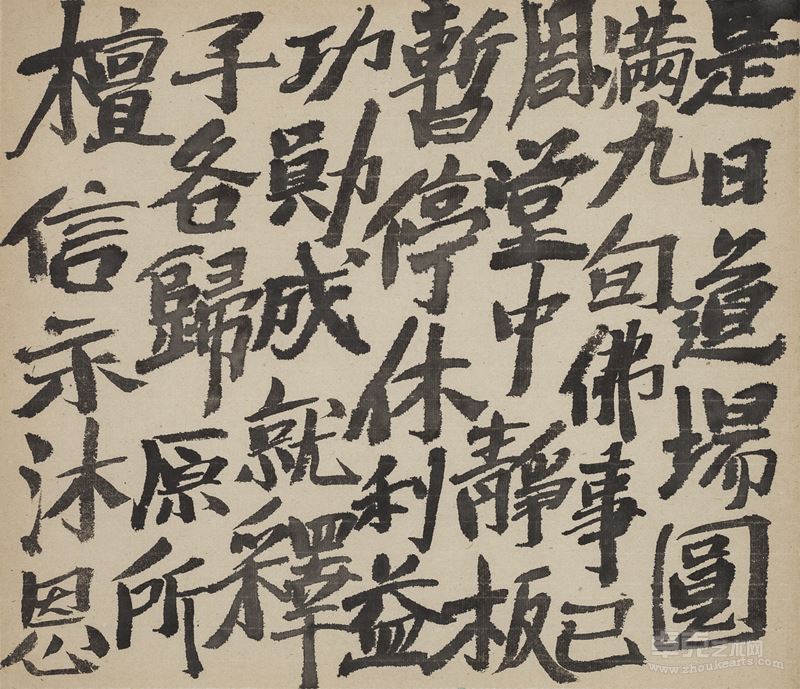 是日道場圓
滿九旬佛事已
周堂中靜板
暫停休利益
功勛成就釋
子各歸原所
檀信示沐恩
卓克艺术网
www.zhoukearts.com